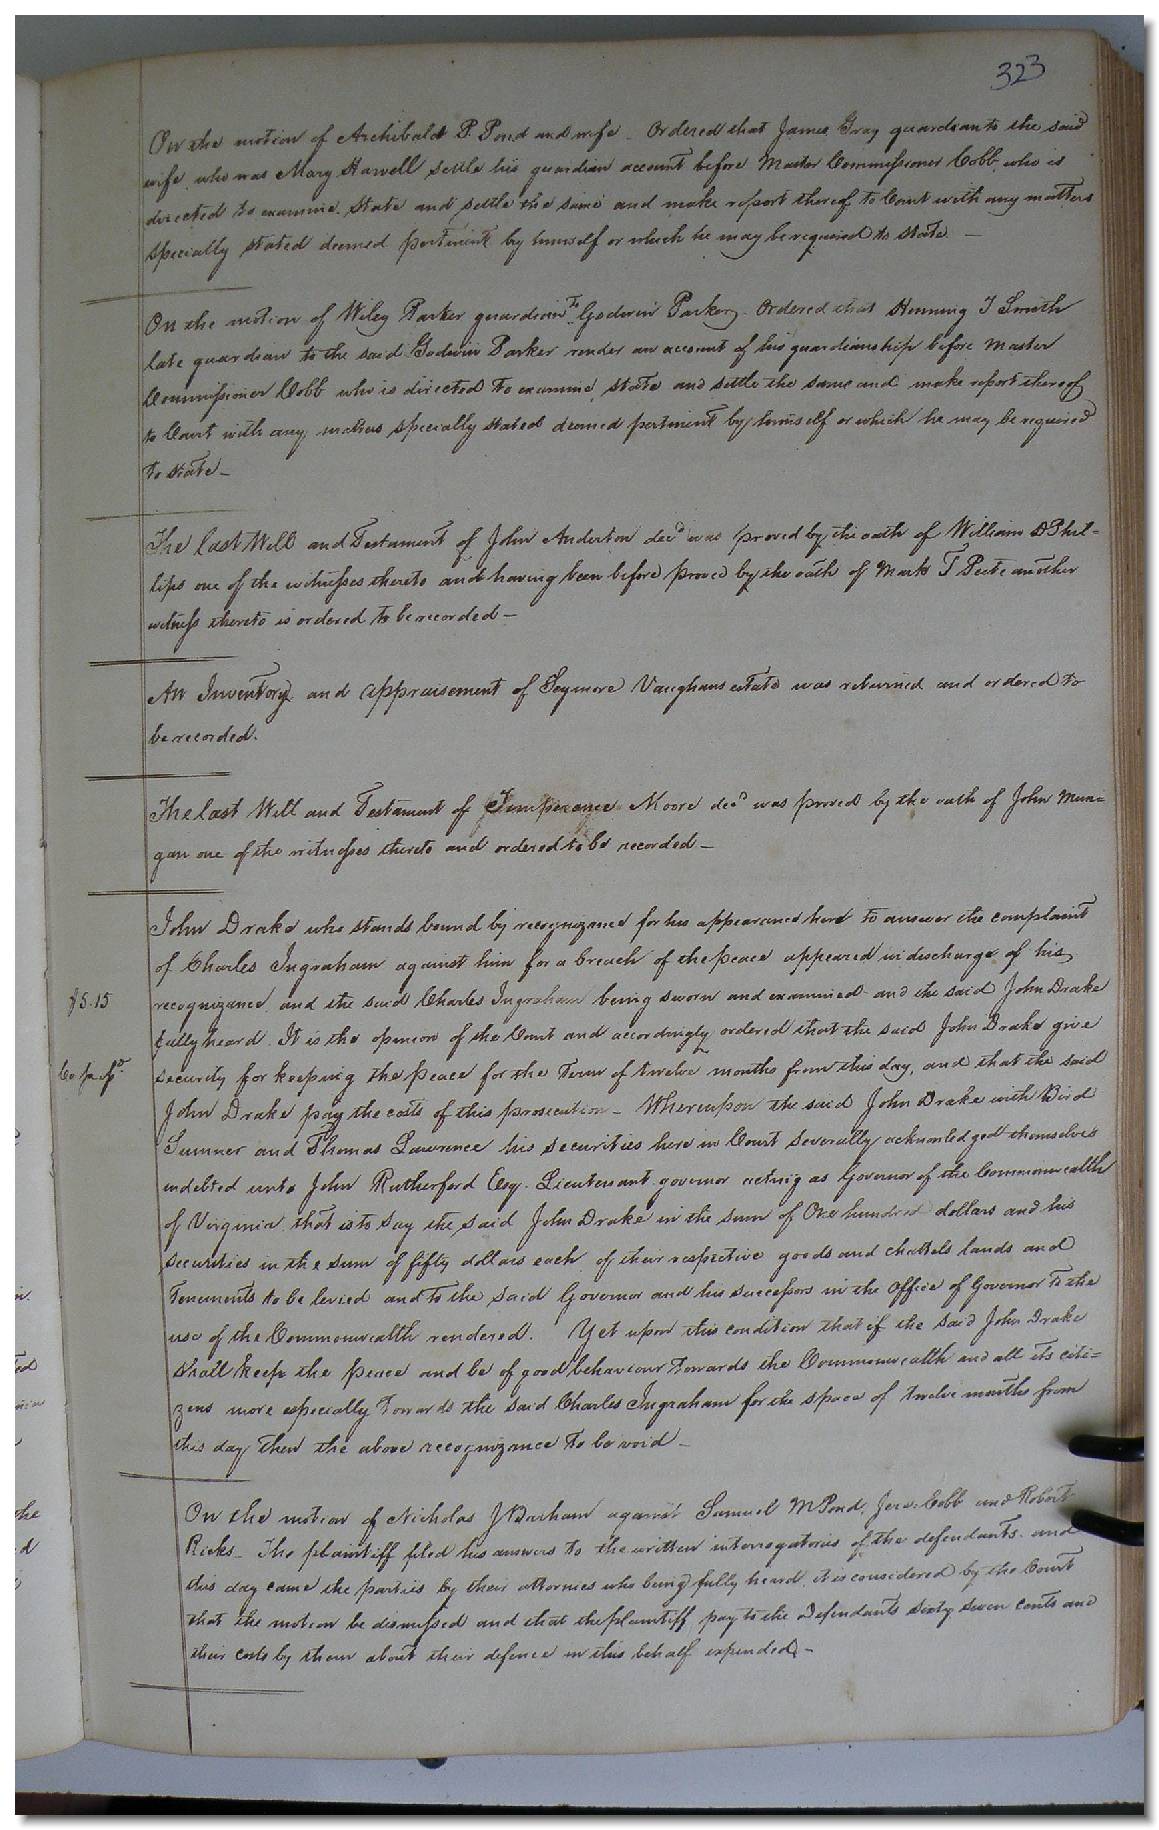 323
On the motion of Archibald P. Pond and wife. Ordered that James Gray guardian to the said
wife, who was Mary Harwell settle his guardian account before Master Commissioner Cobb, who is
directed to examine, state and settle the same and make report thereof to Court with any matters
specially stated deemed pertinent by himself or which he may be required to state. —
On the motion of Wiley Parker guardian To Godwin Parker. Ordered that Henning T Smith
late guardian to the said Godwin Parker render an account of his guardianship before Master
Commissioner Cobb who is directed to examine, state and settle the same and make report thereof
to Court with any matters specially stated deemed pertinent by himself or which he may be required
to state —
The last Will and Testament of John Anderton decd was proved by the oath of William D Phil=
lips one of the witnesses thereto and having been before proved by the oath of Mark T Peete another
witness thereto is ordered to be recorded —
An Inventory and appraisement of Seymore Vaughans estate was returned and ordered to
be recorded.
The last Will and Testament of Temperance Moore decd was proved by the oath of John Mun=
gan one of the witnesses thereto and ordered to be recorded —
John Drake who stands bound by recognizance for his appearance here to answer the complaint
of Charles Ingraham against him for a breach of the peace appeared in discharge of his
$5.15
recognizance, and the said Charles Ingraham being sworn and examined and the said John Drake
fully heard. It is the opinion of the Court and accordingly ordered that the said John Drake give
security for keeping the peace for the Term of twelve months from this day, and that the said
John Drake pay the costs of this prosecution — Whereupon the said John Drake with Bird
Sumner and Thomas Lawrence his securities here in Court severally acknowledged themselves
indebted unto John Rutherford Esq. Lieutenant governor acting as Governor of the Commonwealth
of Virginia, that is to say the said John Drake in the sum of One hundred dollars and his
securities in the sum of fifty dollars each, of their respective goods and chattels lands and
Tenements to be levied and to the said Governor and his successors in the Office of Governor To the
use of the Commonwealth rendered. Yet upon this condition that if the said John Drake
shall keep the peace and be of good behaviour towards the Commonwealth and all its citi=
zens more especially towards the said Charles Ingraham for the space of twelve months from
this day then the above recognizance to be void —
On the motion of Nicholas J Barham against Samuel M Pond, Jere. Cobb and Robert
Ricks — The plaintiff filed his answers to the written interrogatories of the defendants and
this day came the parties by their attornies who being fully heard, it is considered by the Court
that the motion be dismissed and that the plaintiff pay to the Defendants sixty seven cents and
their costs by them about their defence in this behalf expended. —